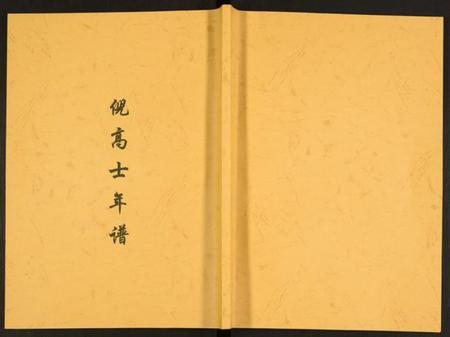 倪高士年譜